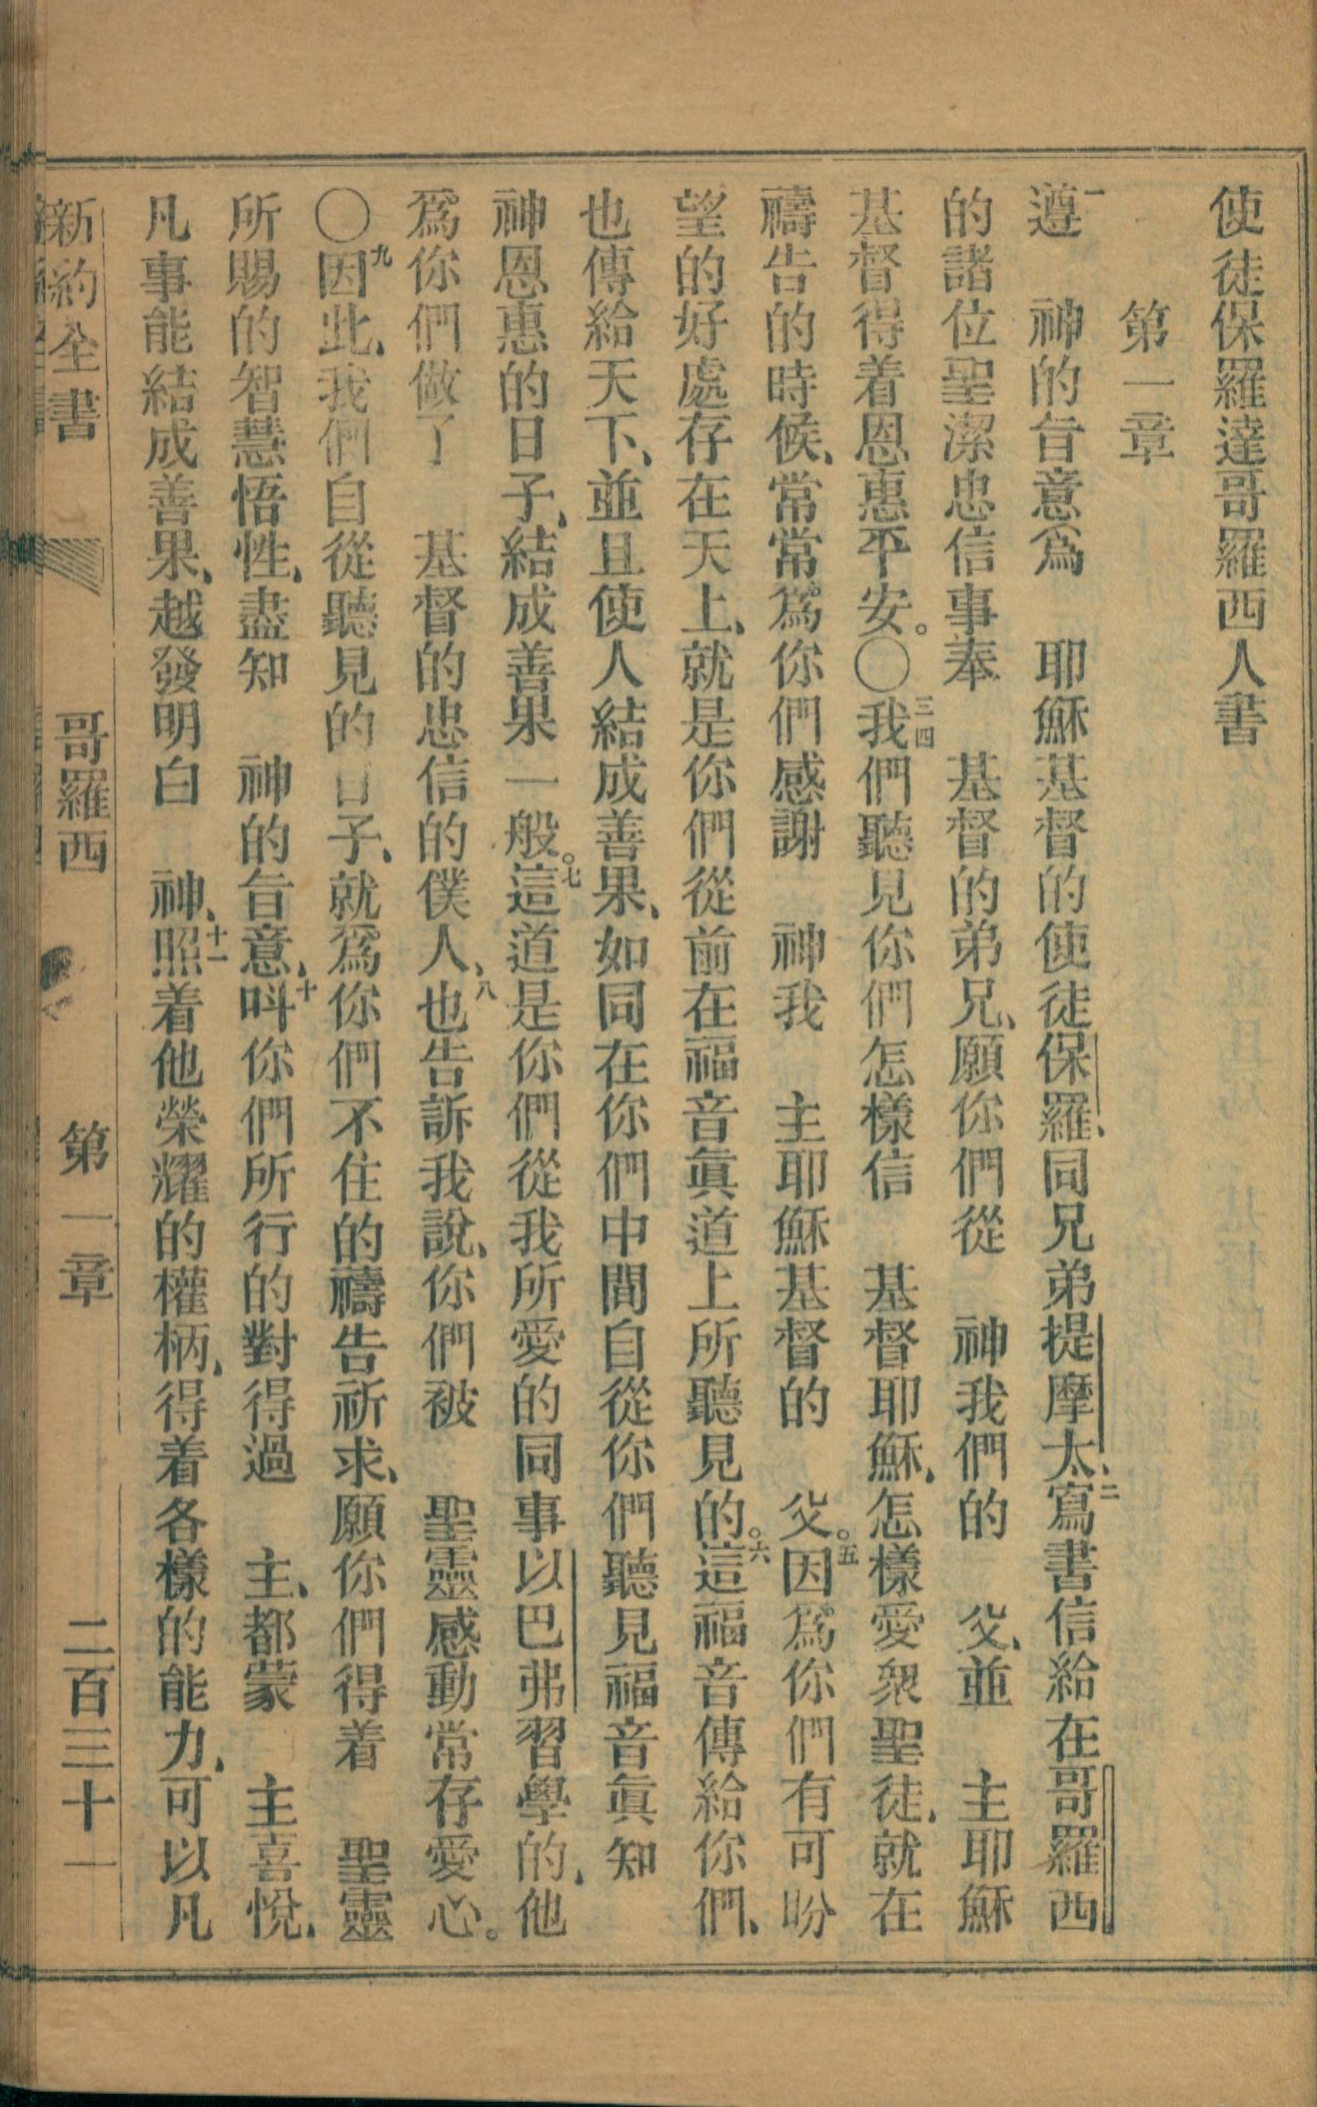 使徒保羅達哥羅西人書
第一章
一遵　神的旨意爲　耶穌基督的使徒保羅、同兄弟提摩太、二寫書信給在哥羅西
的諸位聖潔忠信事奉　基督的弟兄、願你們從　神我們的　父、並　主耶穌
基督得着恩惠平安。〇三四我們聽見你們怎樣信　基督耶穌、怎樣愛衆聖徒、就在
禱告的時候、常常爲你們感謝　神我　主耶穌基督的　父。五因爲你們有可盼
望的好處存在天上、就是你們從前在福音眞道上所聽見的。六這福音傳給你們、
也傳給天下、並且使人結成善果、如同在你們中間自從你們聽見福音眞知
神恩惠的日子、結成善果一般。七這道是你們從我所愛的同事以巴弗習學的、他
爲你們做了　基督的忠信的僕人、八也告訴我說、你們被　聖靈感動常存愛心。
〇九因此、我們自從聽見的日子、就爲你們不住的禱告祈求、願你們得着　聖靈
所賜的智慧悟性、盡知　神的旨意、十呌你們所行的對得過　主、都蒙　主喜悅、
凡事能結成善果、越發明白　神、十一照着他榮耀的權柄、得着各樣的能力、可以凡
新約全書　哥羅西　第一章　二百三十一